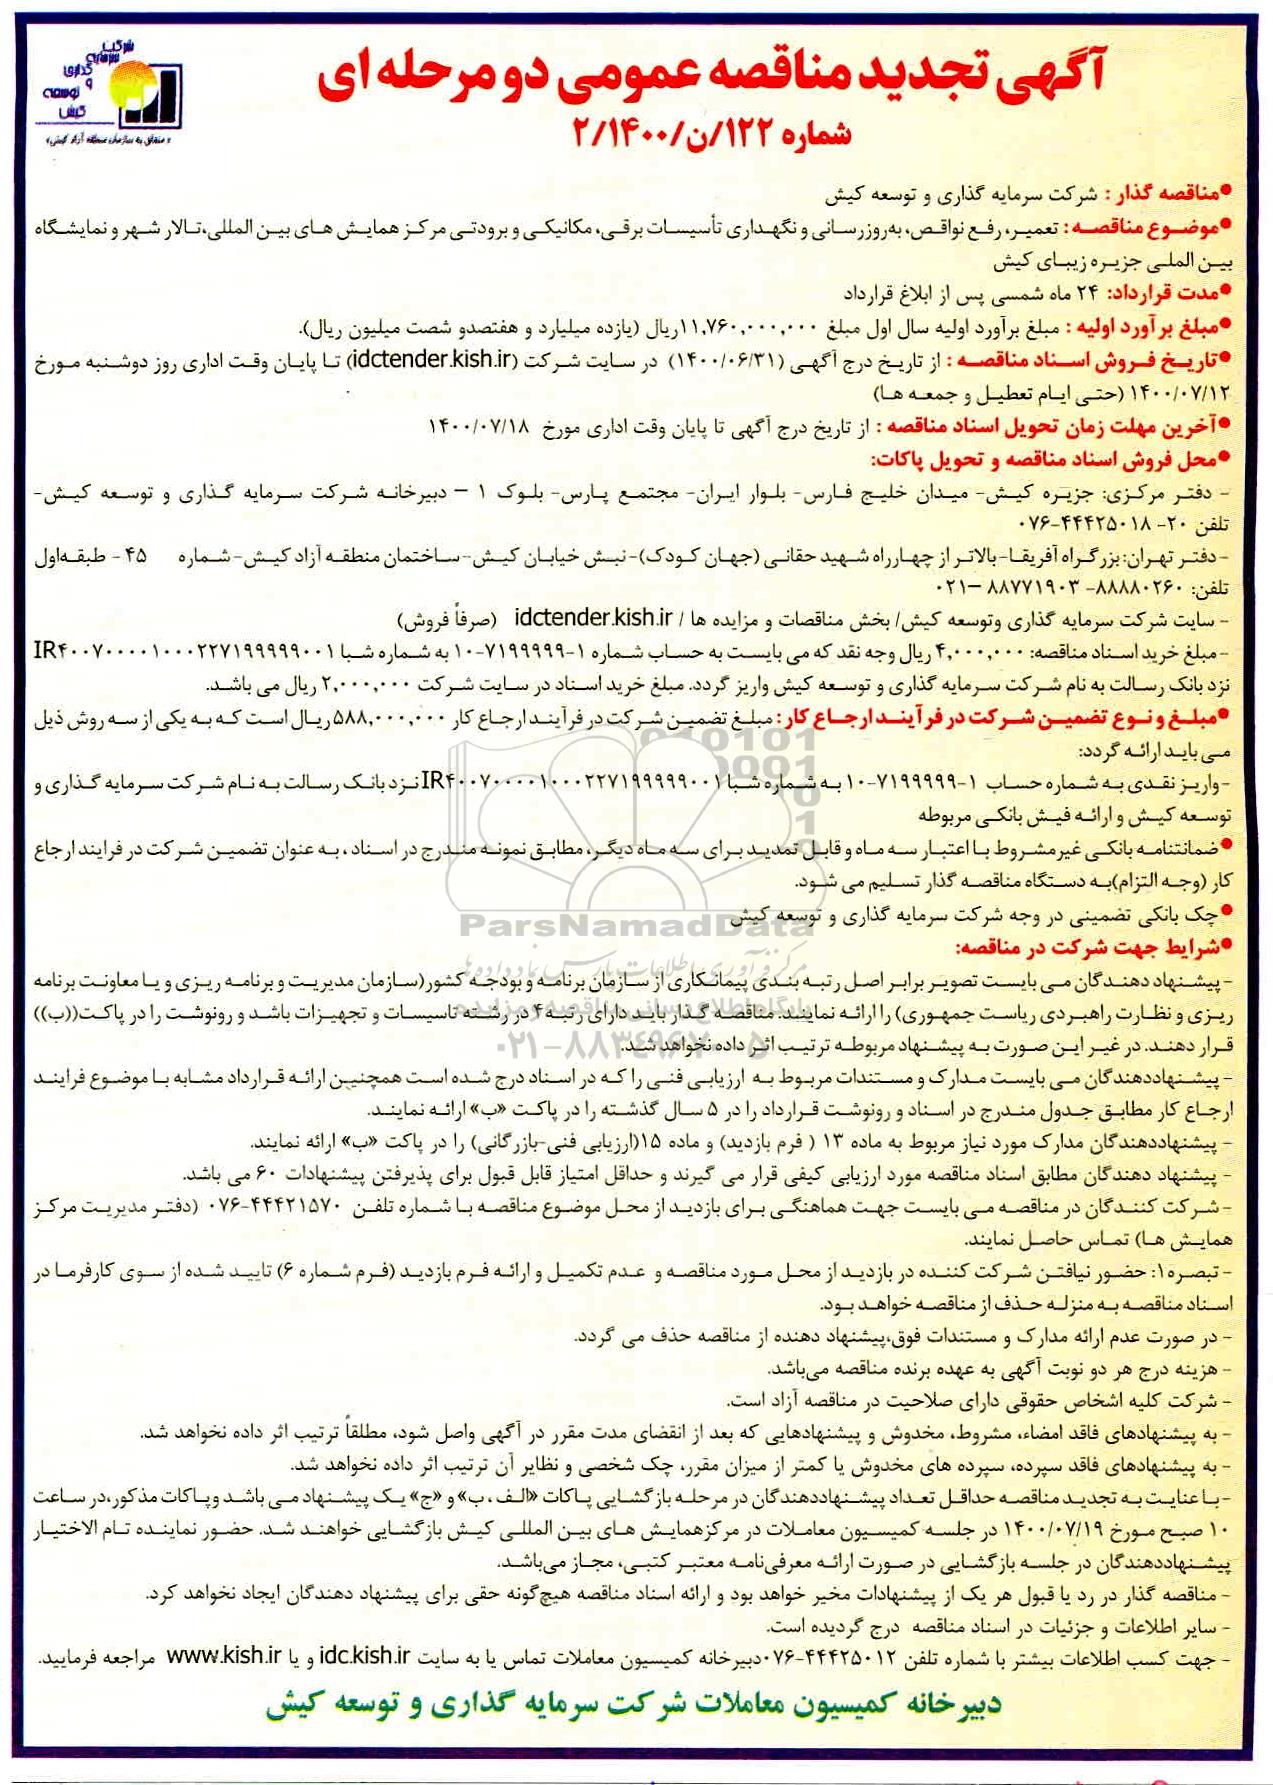 شرکت
سرمایه
گذاری
و
توسعه
کیش
« متعلق به سازمان منطقه آزاد کیش »
آگهی تجدید مناقصه عمومی دو مرحله ای
شماره ۱۲۲/ن/۲/۱۴۰۰
●مناقصه گذار : شرکت سرمایه گذاری و توسعه کیش
●موضوع مناقصه : تعمیر، رفع نواقص، به‌روزرسانی و نگهداری تأسیسات برقی، مکانیکی و برودتی مرکز همایش های بین المللی،تالار شهر و نمایشگاه
بین الملی جزیره زیبای کیش
●مدت قرارداد: ۲۴ ماه شمسی پس از ابلاغ قرارداد
●مبلغ برآورد اولیه : مبلغ برآورد اولیه سال اول مبلغ ۱۱,۷۶۰,۰۰۰,۰۰۰ریال (یازده میلیارد و هفتصدو شصت میلیون ریال).
●تاریخ فروش اسناد مناقصه : از تاریخ درج آگهی (۱۴۰۰/۰۶/۳۱) در سایت شرکت (idctender.kish.ir) تا پایان وقت اداری روز دوشنبه مورخ
۱۴۰۰/۰۷/۱۲ (حتی ایام تعطیل و جمعه ها)
●آخرین مهلت زمان تحویل اسناد مناقصه : از تاریخ درج آگهی تا پایان وقت اداری مورخ ۱۴۰۰/۰۷/۱۸
●محل فروش اسناد مناقصه و تحویل پاکات:
- دفتر مرکزی: جزیره کیش- میدان خلیج فارس- بلوار ایران- مجتمع پارس- بلوک ۱ – دبیرخانه شرکت سرمایه گذاری و توسعه کیش-
تلفن ۲۰- ۰۷۶-۴۴۴۲۵۰۱۸
-دفتر تهران:بزرگراه آفریقا-بالاتر از چهارراه شهید حقانی (جهان کودک)-نبش خیابان کیش-ساختمان منطقه آزاد کیش-شماره ۴۵ - طبقه‌اول
تلفن: ۸۸۸۸۰۲۶۰- ۸۸۷۷۱۹۰۳ –۰۲۱
- سایت شرکت سرمایه گذاری وتوسعه کیش/ بخش مناقصات و مزایده ها / idctender.kish.ir (صرفاً فروش)
-مبلغ خرید اسناد مناقصه: ۴,۰۰۰,۰۰۰ ریال وجه نقد که می بایست به حساب شماره ۱-۷۱۹۹۹۹۹-۱۰ به شماره شبا IR۴۰۰۷۰۰۰۰۱۰۰۰۲۲۷۱۹۹۹۹۹۰۰۱
نزد بانک رسالت به نام شرکت سرمایه گذاری و توسعه کیش واریز گردد. مبلغ خرید اسناد در سایت شرکت ۲,۰۰۰,۰۰۰ ریال می باشد.
●مبلغ و نوع تضمین شرکت در فرآیند ارجاع کار : مبلغ تضمین شرکت در فرآیند ارجاع کار ۵۸۸,۰۰۰,۰۰۰ ریال است که به یکی از سه روش ذیل
می باید ارائه گردد:
-واریز نقدی به شماره حساب ۱-۷۱۹۹۹۹۹-۱۰ به شماره شبا IR۴۰۰۷۰۰۰۰۱۰۰۰۲۲۷۱۹۹۹۹۹۰۰۱نزد بانک رسالت به نام شرکت سرمایه گذاری و
توسعه کیش و ارائه فیش بانکی مربوطه
●ضمانتنامه بانکی غیرمشروط با اعتبار سه ماه و قابل تمدید برای سه ماه دیگر، مطابق نمونه مندرج در اسناد ، به عنوان تضمین شرکت در فرایند ارجاع
کار (وجه التزام)به دستگاه مناقصه گذار تسلیم می شود.
●چک بانکی تضمینی در وجه شرکت سرمایه گذاری و توسعه کیش
ParsNamadData
●شرایط جهت شرکت در مناقصه:
مرکز فرآوری اطلاعات پارس نماد داده ها
-پیشنهاد دهندگان می بایست تصویر برابر اصل رتبه بندی پیمانکاری از سازمان برنامه و بودجه کشور(سازمان مدیریت و برنامه ریزی و یا معاونت برنامه
پایگاه اطلاع رسانی مناقصه و مزایده
ریزی و نظارت راهبردی ریاست جمهوری) را ارائه نمایند. مناقصه گذار باید دارای رتبه ۴ در رشته تاسیسات و تجهیزات باشد و رونوشت را در پاکت((ب))
قرار دهند. در غیر این صورت به پیشنهاد مربوطه ترتیب اثر داده نخواهد شد.
۰۲۱-۸۸۳۴۹۶۷۰-۵
- پیشنهاددهندگان می بایست مدارک و مستندات مربوط به ارزیابی فنی را که در اسناد درج شده است همچنین ارائه قرارداد مشابه با موضوع فرایند
ارجاع کار مطابق جدول مندرج در اسناد و رونوشت قرارداد را در ۵ سال گذشته را در پاکت «ب» ارائه نمایند.
- پیشنهاددهندگان مدارک مورد نیاز مربوط به ماده ۱۳ ( فرم بازدید) و ماده ۱۵(ارزیابی فنی-بازرگانی) را در پاکت «ب» ارائه نمایند.
- پیشنهاد دهندگان مطابق اسناد مناقصه مورد ارزیابی کیفی قرار می گیرند و حداقل امتیاز قابل قبول برای پذیرفتن پیشنهادات ۶۰ می باشد.
-شرکت کنندگان در مناقصه می بایست جهت هماهنگی برای بازدید از محل موضوع مناقصه با شماره تلفن ۰۷۶-۴۴۴۲۱۵۷۰ (دفتر مدیریت مرکز
همایش ها) تماس حاصل نمایند.
-تبصره۱: حضور نیافتن شرکت کننده در بازدید از محل مورد مناقصه و عدم تکمیل و ارائه فرم بازدید (فرم شماره ۶) تایید شده از سوی کارفرما در
اسناد مناقصه به منزله حذف از مناقصه خواهد بود.
- در صورت عدم ارائه مدارک و مستندات فوق،پیشنهاد دهنده از مناقصه حذف می گردد.
- هزینه درج هر دو نوبت آگهی به عهده برنده مناقصه می‌باشد.
- شرکت کلیه اشخاص حقوقی دارای صلاحیت در مناقصه آزاد است.
- به پیشنهادهای فاقد امضاء، مشروط، مخدوش و پیشنهادهایی که بعد از انقضای مدت مقرر در آگهی واصل شود، مطلقاً ترتیب اثر داده نخواهد شد.
- به پیشنهادهای فاقد سپرده، سپرده های مخدوش یا کمتر از میزان مقرر، چک شخصی و نظایر آن ترتیب اثر داده نخواهد شد.
-با عنایت به تجدید مناقصه حداقل تعداد پیشنهاددهندگان در مرحله بازگشایی پاکات «الف ، ب» و «ج» یک پیشنهاد می باشد و پاکات مذکور،در ساعت
۱۰ صبح مورخ ۱۴۰۰/۰۷/۱۹ در جلسه کمیسیون معاملات در مرکزهمایش های بین المللی کیش بازگشایی خواهند شد. حضور نماینده تام الاختیار
پیشنهاددهندگان در جلسه بازگشایی در صورت ارائه معرفی‌نامه معتبر کتبی، مجاز می‌باشد.
- مناقصه گذار در رد یا قبول هر یک از پیشنهادات مخیر خواهد بود و ارائه اسناد مناقصه هیچ‌گونه حقی برای پیشنهاد دهندگان ایجاد نخواهد کرد.
- سایر اطلاعات و جزئیات در اسناد مناقصه درج گردیده است.
- جهت کسب اطلاعات بیشتر با شماره تلفن ۰۷۶-۴۴۴۲۵۰۱۲دبیرخانه کمیسیون معاملات تماس یا به سایت idc.kish.ir و یا www.kish.ir مراجعه فرمایید.
دبیرخانه کمیسیون معاملات شرکت سرمایه گذاری و توسعه کیش